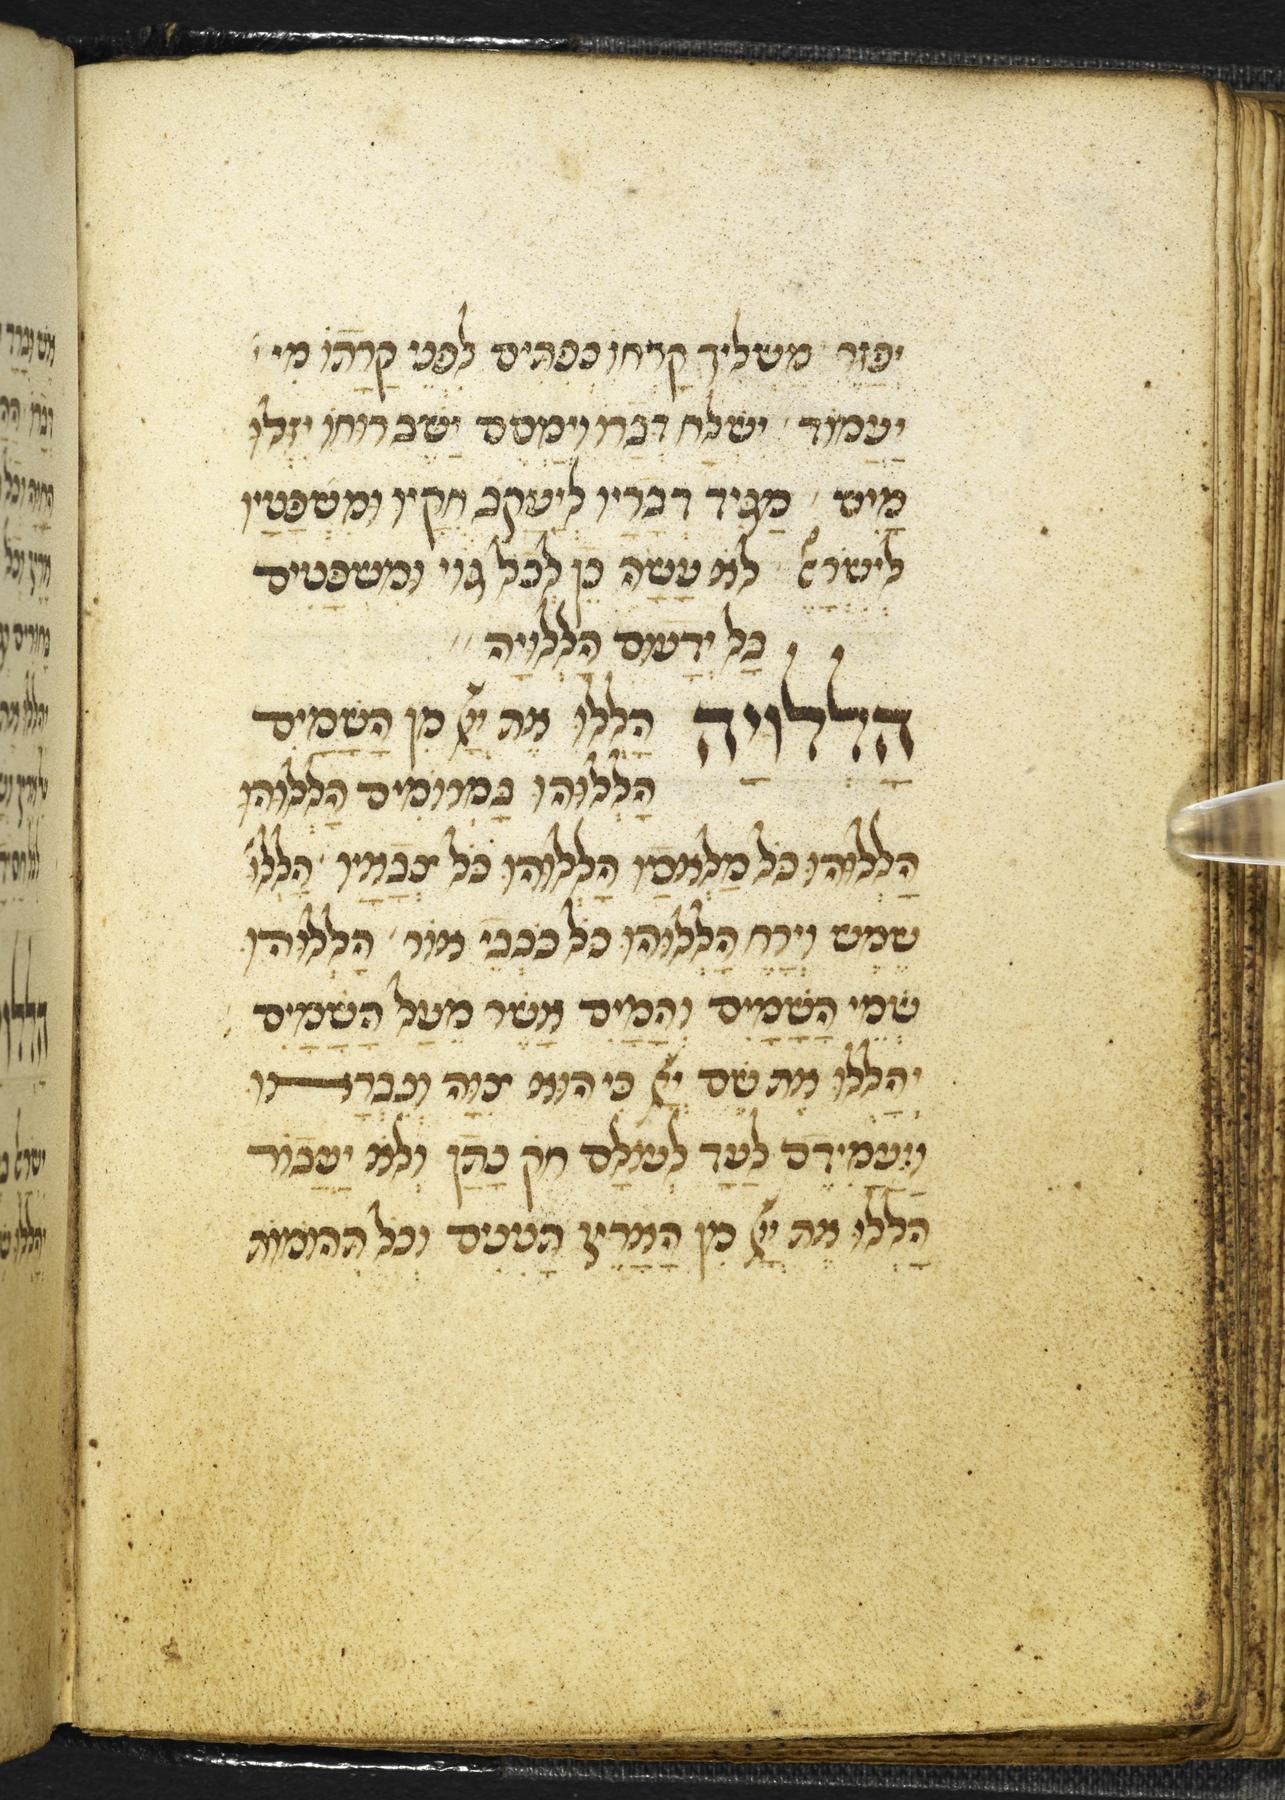 יְפַזֵר משליך קָרחו כפתים לפני קָרָתוֹ מִי
יַעֲמוֹד ישלח דְבָרו וְיַמְסֵם יַשֵב רוחו יזלו
מָיִם מַגִיד דבריו ליעקב חקיו וּמִשְפָטָיו
לישראל לא עָשָה כֵן לכל גוי וּמִשְפָטִים
בָל יְדָעוּם הַלְלוּיָה
הַלְלוּיָהּ הַלְלוּ אֶת יְיָ מִן הַשָמַיִם
הַלְלוּהוּ בַמְרוֹמִים הַלְלוּהוּ
הַלְלוּהוּ כל מַלְאָכָיו הַלְלוּהוּ כֹל צבָאָיו הַלְלוּ
שֶמֶש וְיָרֵחַ הַלְלוּהוּ כל כֹכְבֵי אוֹר הַלְלוּהוּ
שְמֵי הַשָמָיִם וְהַמַיִם אֲשֶר מֵעַל הַשָמָיִם
יְהַלְלוּ אֶת שֵם יְיָ כִי הוּא צִוָה וְנִבְרָאוּ
וַיַעֲמִידֵם לָעַד לְעוֹלָם חק נָתַן וְלֹא יַעֲבוֹר
הַלְלוּ אֶת יְיָ מִן הָאָרֶץ תַנִינִים וְכָל תְהוֹמוֹת